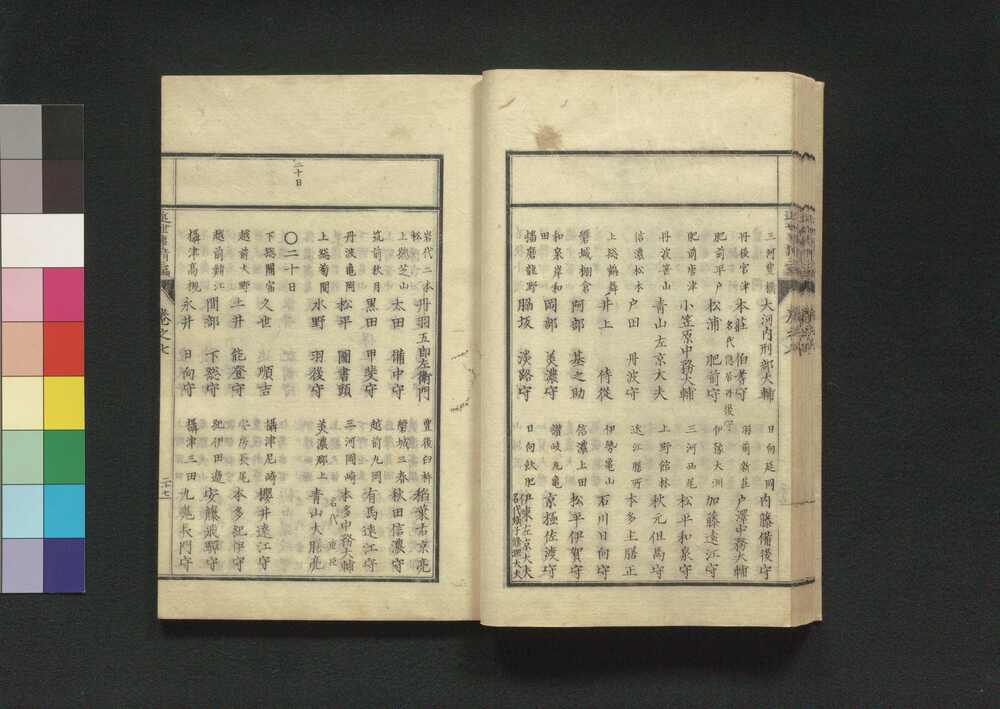 三河豊橋 大河内刑部大輔 日向延岡 内藤備後守
丹後宮津 本荘伯耆守 羽前新荘 戸澤中務大輔
名代 隠居丹後守
肥前平戸 松浦肥前守 伊豫大洲 加藤遠江守
肥前唐津 小笠原中務大輔 三河西尾 松平和泉守
丹波篠山 青山左京大夫 上野館林 秋元但馬守
信濃松本 戸田丹波守 遠江 本多上膳正
上総鶴舞 井上侍従 伊勢亀山 石川日向守
磐城棚倉 阿部基之助 信濃上田 松平伊賀守
和泉岸和田 岡部美濃守 讃岐丸亀 京極佐渡守
播磨龍野 脇坂淡路守 日向飫肥 伊東左京大夫
名代嫡子修理大夫
岩代二本松 丹羽五郎左衛門 豊後臼杵 稲葉右京亮
上総芝山 太田備中守 磐城三春 秋田信濃守
筑前秋月 黒田甲斐守 越前丸岡 有馬遠江守
丹波亀岡 松平圖書頭 三河岡崎 本多中務大輔
名代 重臣
上総菊間 水野羽後守 美濃郡上 青山大膳亮
二十日
〇二十日
下総關宿 久世順吉 攝津尼崎 櫻井遠江守
越前大野 土井能登守 安房長尾 本多紀伊守
越前鯖江 間部下総守 紀伊田邉 安藤飛驒守
攝津高槻 永井日向守 攝津三田 九鬼長門守
巻之七
二十七